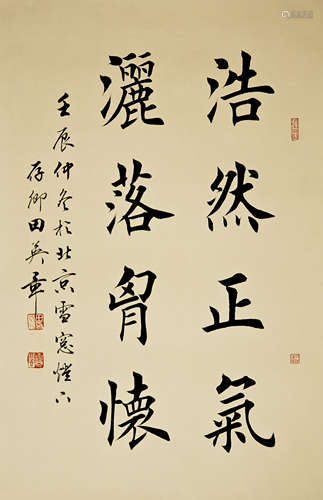 浩然正氣
灑落胷懷
壬辰仲冬於北京雪窓燈下
存卿田英章